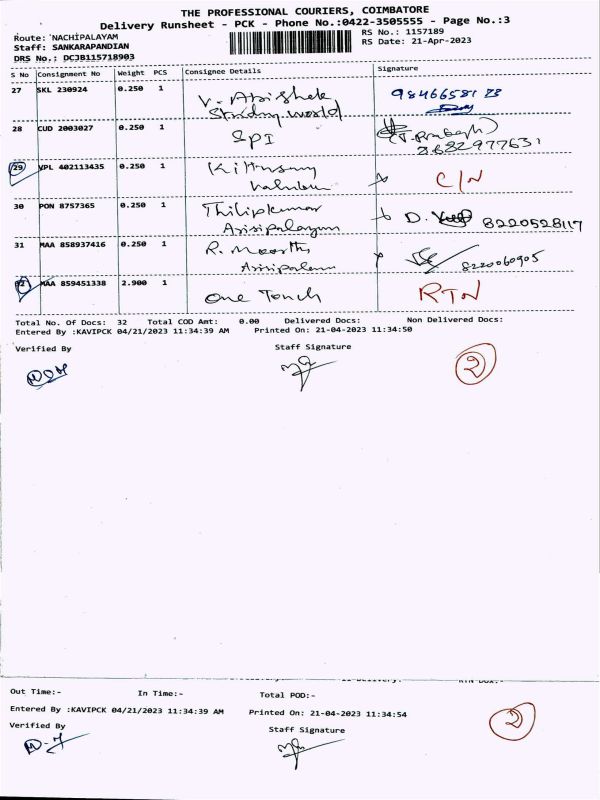 THE PROFESSIONAL COURIERS, COIMBATORE
Delivery Runsheet - PCK - Phone No.:0422-3505555 - Page No.:3
Route: NACHIPALAYAM
Staff: SANKARAPANDIAN
DRS No.: DCJB115718903
RS No.: 1157189
RS Date: 21-Apr-2023
S No Consignment No Weight PCS Consignee Details Signature
27 SKL 230924 0.250 1 V. Abishek
98466581
28 CUD 2003027 0.250 1 SPI
8682977631
29 VPL 402113435 0.250 1 C/N
30 PON 8757365 0.250 1 Thilipkumar
Asisipalayam D. 8220528117
31 MAA 858937416 0.250 1 R. Moorthi
8220060905
32 MAA 859451338 2.900 1 One Touch RTN
Total No. Of Docs: 32 Total COD Amt: 0.00 Delivered Docs: Non Delivered Docs:
Entered By :KAVIPCK 04/21/2023 11:34:39 AM Printed On: 21-04-2023 11:34:50
Verified By Staff Signature
2
Out Time:- In Time:- Total POD:-
Entered By :KAVIPCK 04/21/2023 11:34:39 AM Printed On: 21-04-2023 11:34:54
Verified By Staff Signature
2